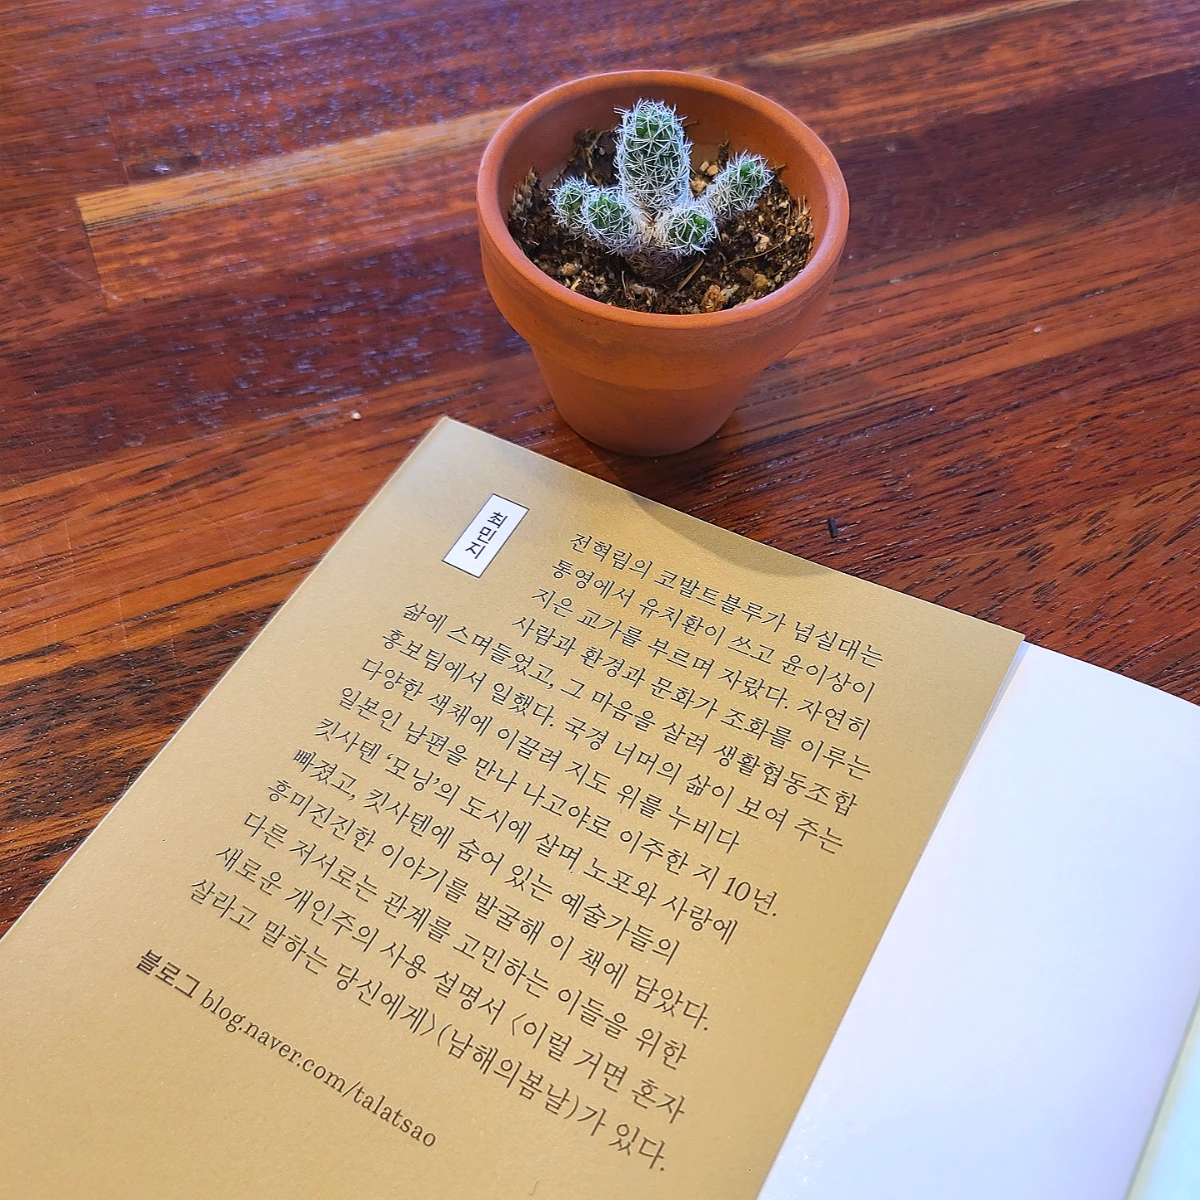 최민지
전혁림의 코발트블루가 넘실대는
통영에서 유치환이 쓰고 윤이상이
지은 교가를 부르며 자랐다. 자연히
사람과 환경과 문화가 조화를 이루는
삶에 스며들었고, 그 마음을 살려 생활협동조합
홍보팀에서 일했다. 국경 너머의 삶이 보여 주는
다양한 색채에 이끌려 지도 위를 누비다
일본인 남편을 만나 나고야로 이주한 지 10년.
킷사텐 ‘모닝’의 도시에 살며 노포와 사랑에
빠졌고, 킷사텐에 숨어 있는 예술가들의
흥미진진한 이야기를 발굴해 이 책에 담았다.
다른 저서로는 관계를 고민하는 이들을 위한
새로운 개인주의 사용 설명서 〈이럴 거면 혼자
살라고 말하는 당신에게〉(남해의봄날)가 있다.
블로그 blog.naver.com/talatsao